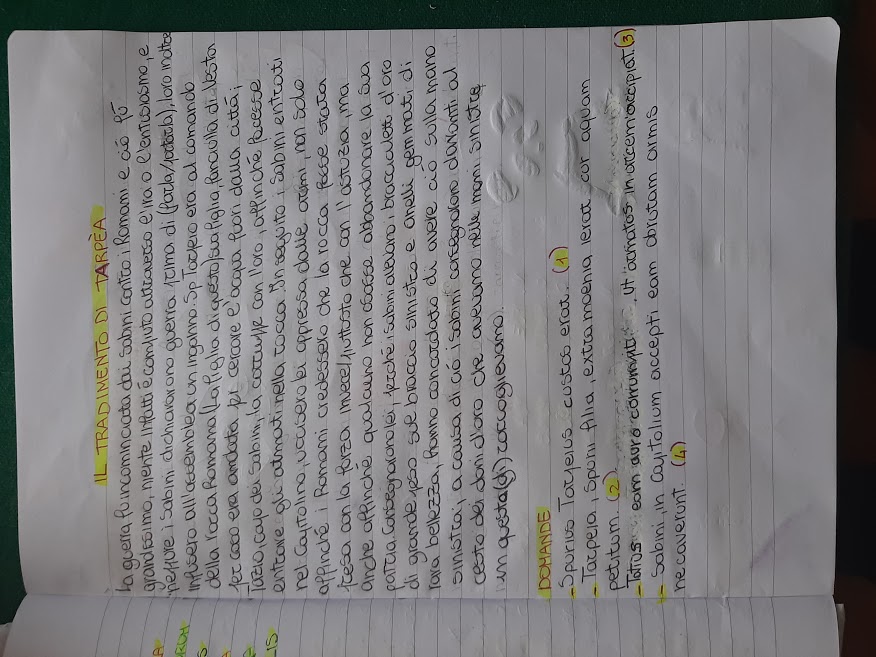 IL TRADIMENTO DI TARPÈA
la guerra fu incominciata dai Sabini contro i Romani e ciò fù
grandissimo, niente infatti è compiuto attraverso l'ira o l'entusiasmo, e
neppure i Sabini dichiararono guerra prima di (farla/portarla), loro inoltre
infusero all'assemblea un inganno. Sp Tarpero era al comando
della rocca Romana (la figlia di questo/sua figlia, fanciulla di Vesta
per caso era andata per cercare l'acqua fuor dalla città;
Tazio, capo dei Sabini, la corruppe con l'oro, affinché facesse
entrare gli armati nella rocca. In seguito i Sabini entrati
nel Capitolino, uccisero lei oppressa dalle armi, non solo
affinché i Romani credessero che la rocca fosse stata
presa con la forza invece/piuttosto che con l'astuzia, ma
anche affinché qualcuno non osasse abbandonare la sua
patria. Consegnarono lei, perché i Sabini avevano i braccialetti d'oro
di grande peso sul braccio sinistro e anelli gemmati di
rara bellezza, hanno concordato di avere ciò sulla mano
sinistra; a causa di ciò i Sabini consegnarono davanti al
cesto dei doni d'oro che avevamo nelle mani sinistre
in questa (di) raccoglievamo.
DOMANDE
- Spurius Tarpeius custos erat. (1)
- Tarpeia, Spuri filia, extra moenia ierat cur aquam
petitum. (2)
- Tatius eam auro corrumpit ut armatos in arcem accipiat. (3)
- Sabini, in Capitolium accepti eam obrutam armis
necaverunt. (4)
LIS